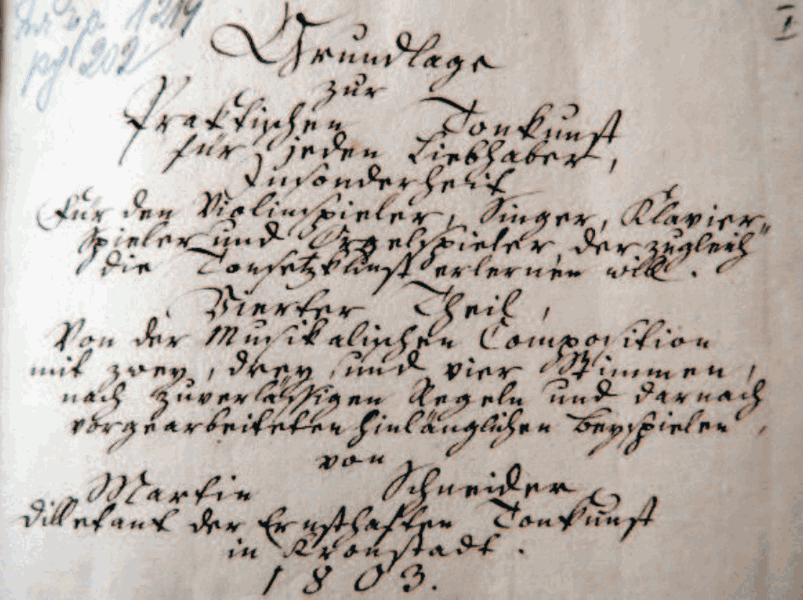 No 1219
pg 202
I
Grundlage
zur
Praktischen Tonkunst
für jeden Liebhaber,
Insonderheit
Für den Violinspieler, Singer, Klavier"
Spieler und Orgelspieler, der zugleich
die Tonsetzkunst erlernen will.
Vierter Theil,
Von der Musikalischen Composition
mit zwey, drey, und vier Stimmen,
nach zuverlässigen Regeln und darnach
vorgearbeiteten hinlänglichen Beyspielen,
von
Martin Schneider
Dilletant der Ernsthaften Tonkunst
in Kronstadt.
1803.